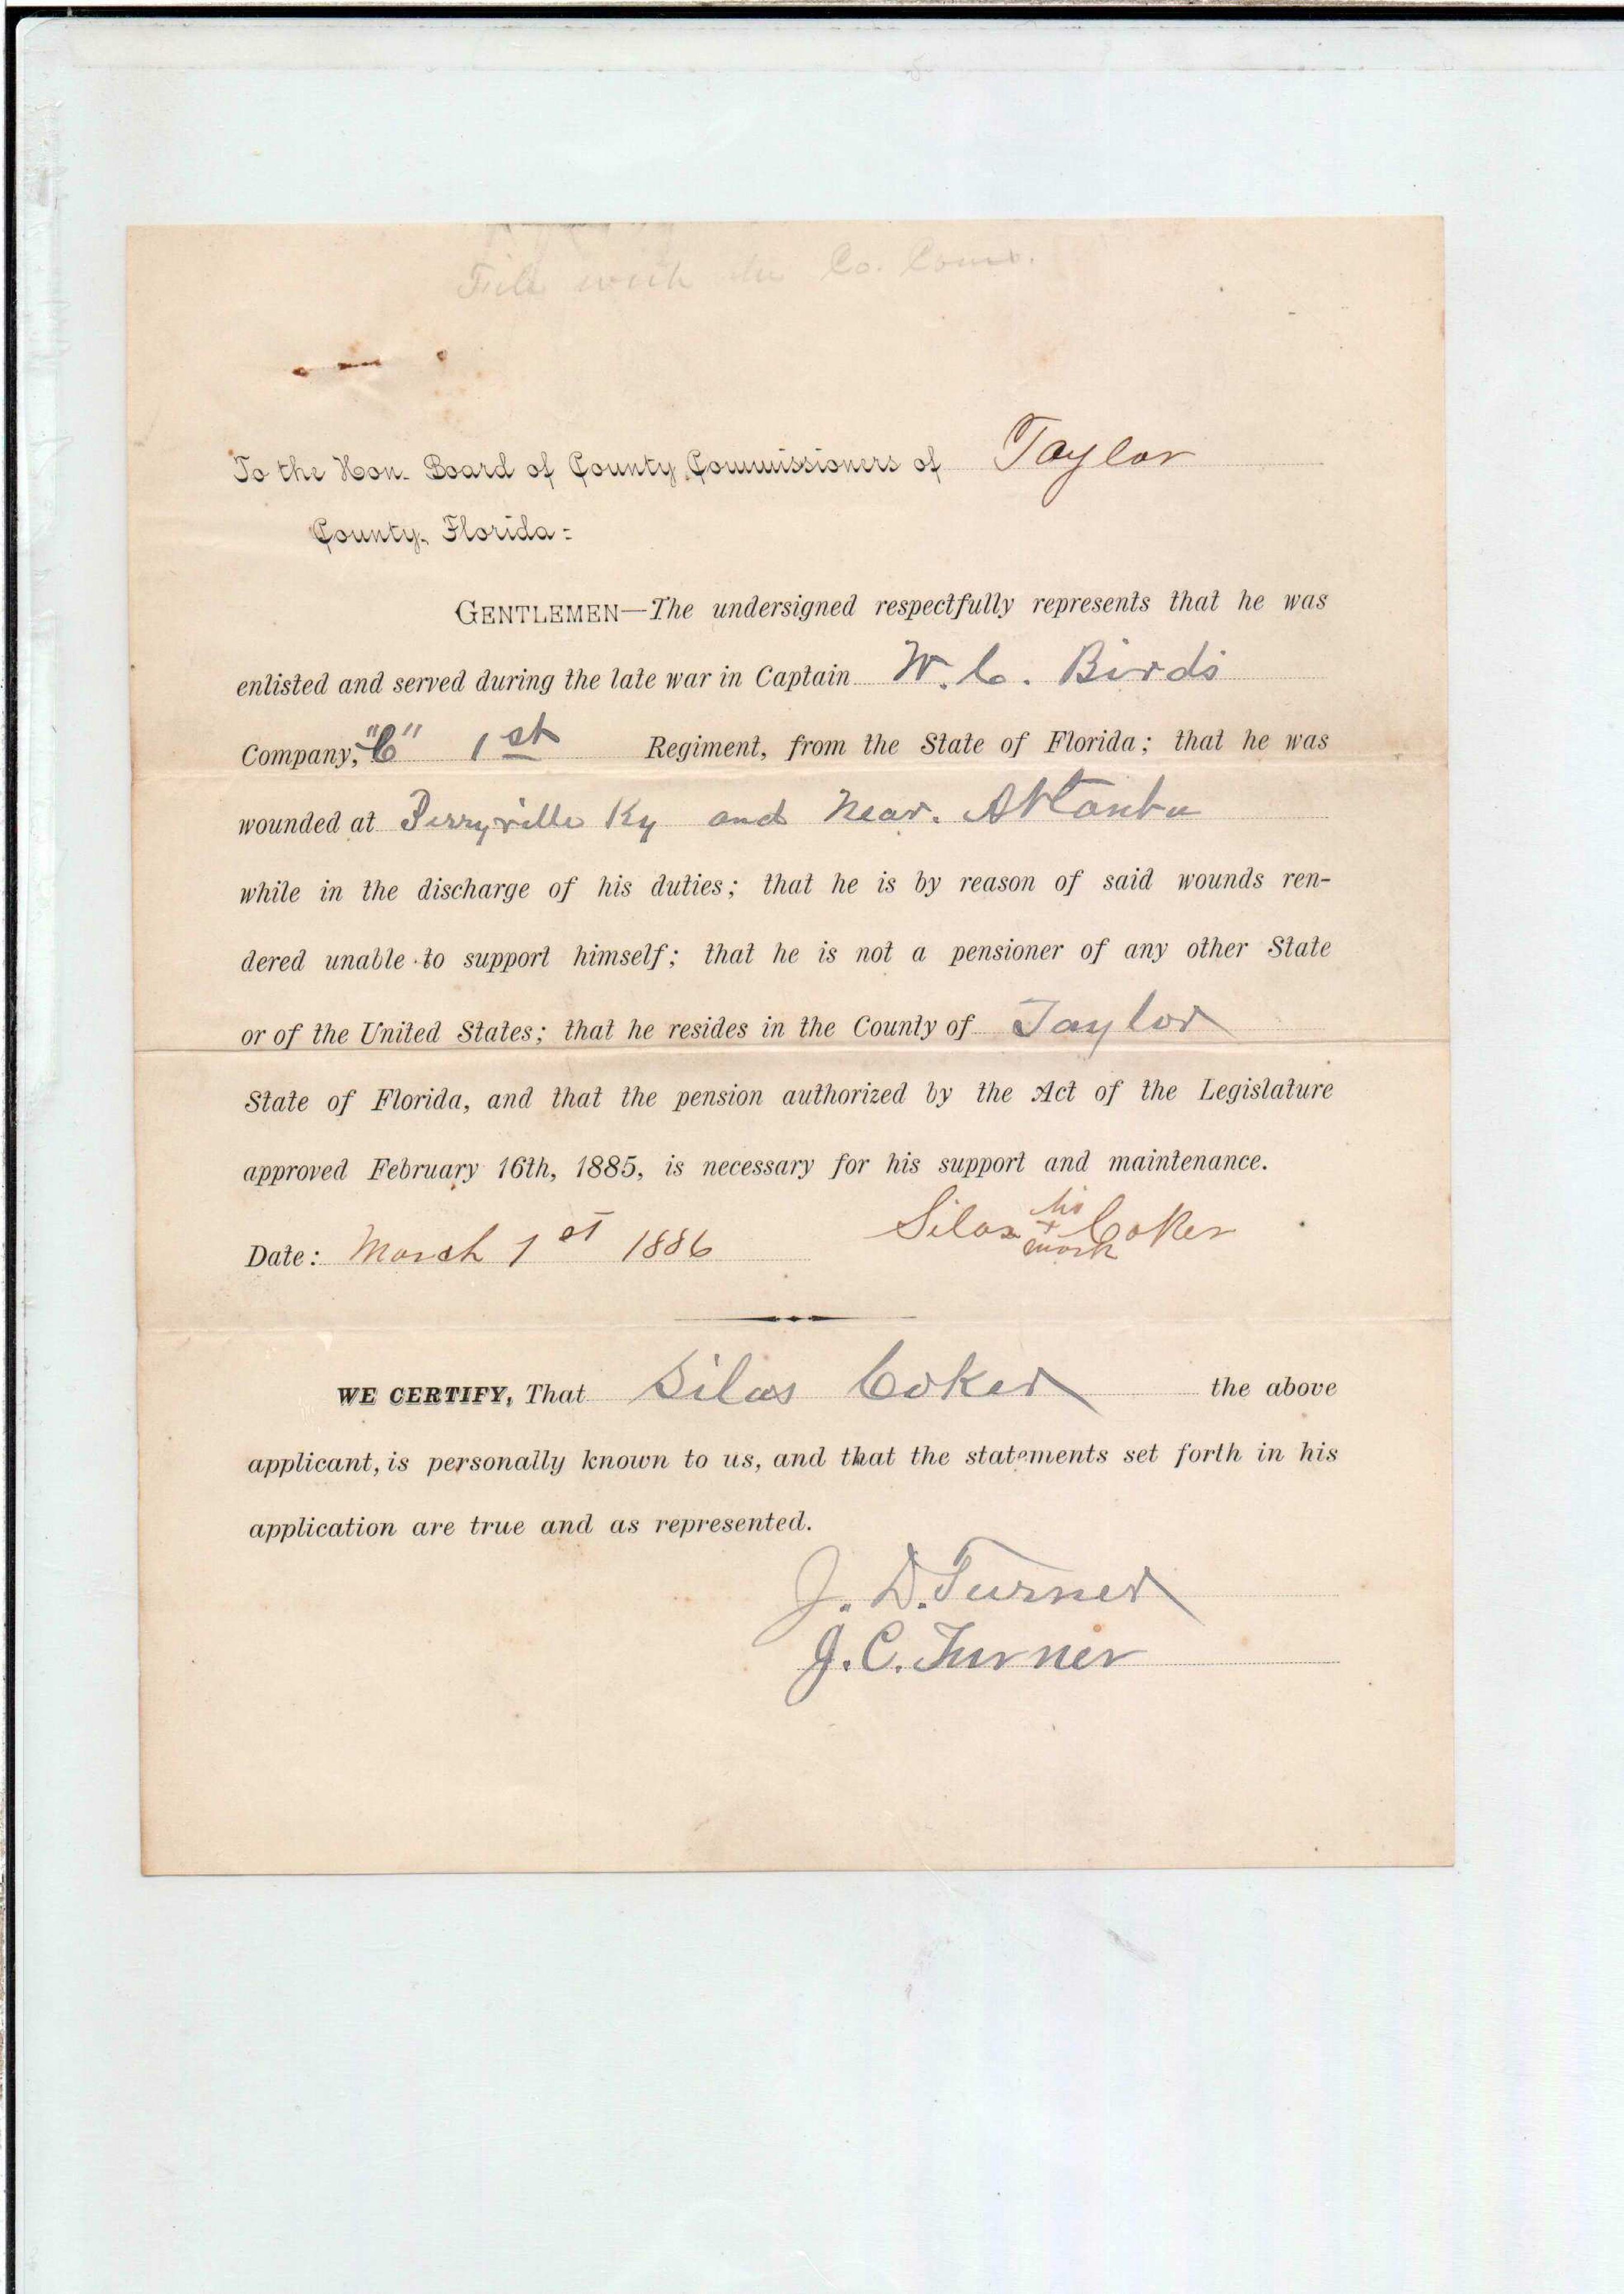 File with the Co. Coms.
To the Hon. Board of County Commissioners of Taylor
County, Florida:
GENTLEMEN—The undersigned respectfully represents that he was
enlisted and served during the late war in Captain W. C. Birds
Company, "C" 1st Regiment, from the State of Florida; that he was
wounded at Perryville Ky and Near. Atlanta
while in the discharge of his duties; that he is by reason of said wounds ren-
dered unable to support himself; that he is not a pensioner of any other State
or of the United States; that he resides in the County of Taylor
State of Florida, and that the pension authorized by the Act of the Legislature
approved February 16th, 1885, is necessary for his support and maintenance.
his
Date: March 1st 1886 Silas + Coker
mark
WE CERTIFY, That Silas Coker the above
applicant, is personally known to us, and that the statements set forth in his
application are true and as represented.
J. D. Turner
J. C. Turner